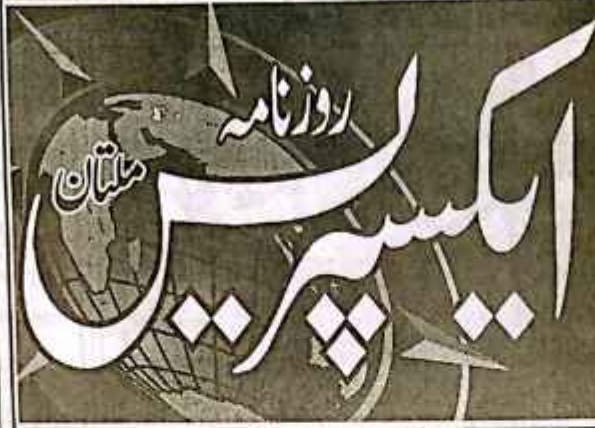 روزنامہ
ایکسپریس
ملتان